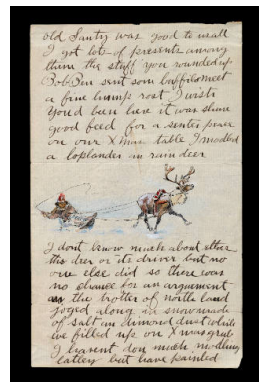 old Santy was good to us all
I got lots of presents among
them the stuff you rounded up
Bob Ben sent som buffilo meet
a fine hump rost I wish
you'd been here it was shure
good feed for a senter peace
on our X mas table I modled
a loplander in rain deer
I dont know much about ether
the deer or its driver but no
one else did so there was
no chance for an argument
as the trotter of north land
joged along in snow made
of salt an dimond dust while
we filled up on Xmas grub
I havent don much modling
lattey but have painted